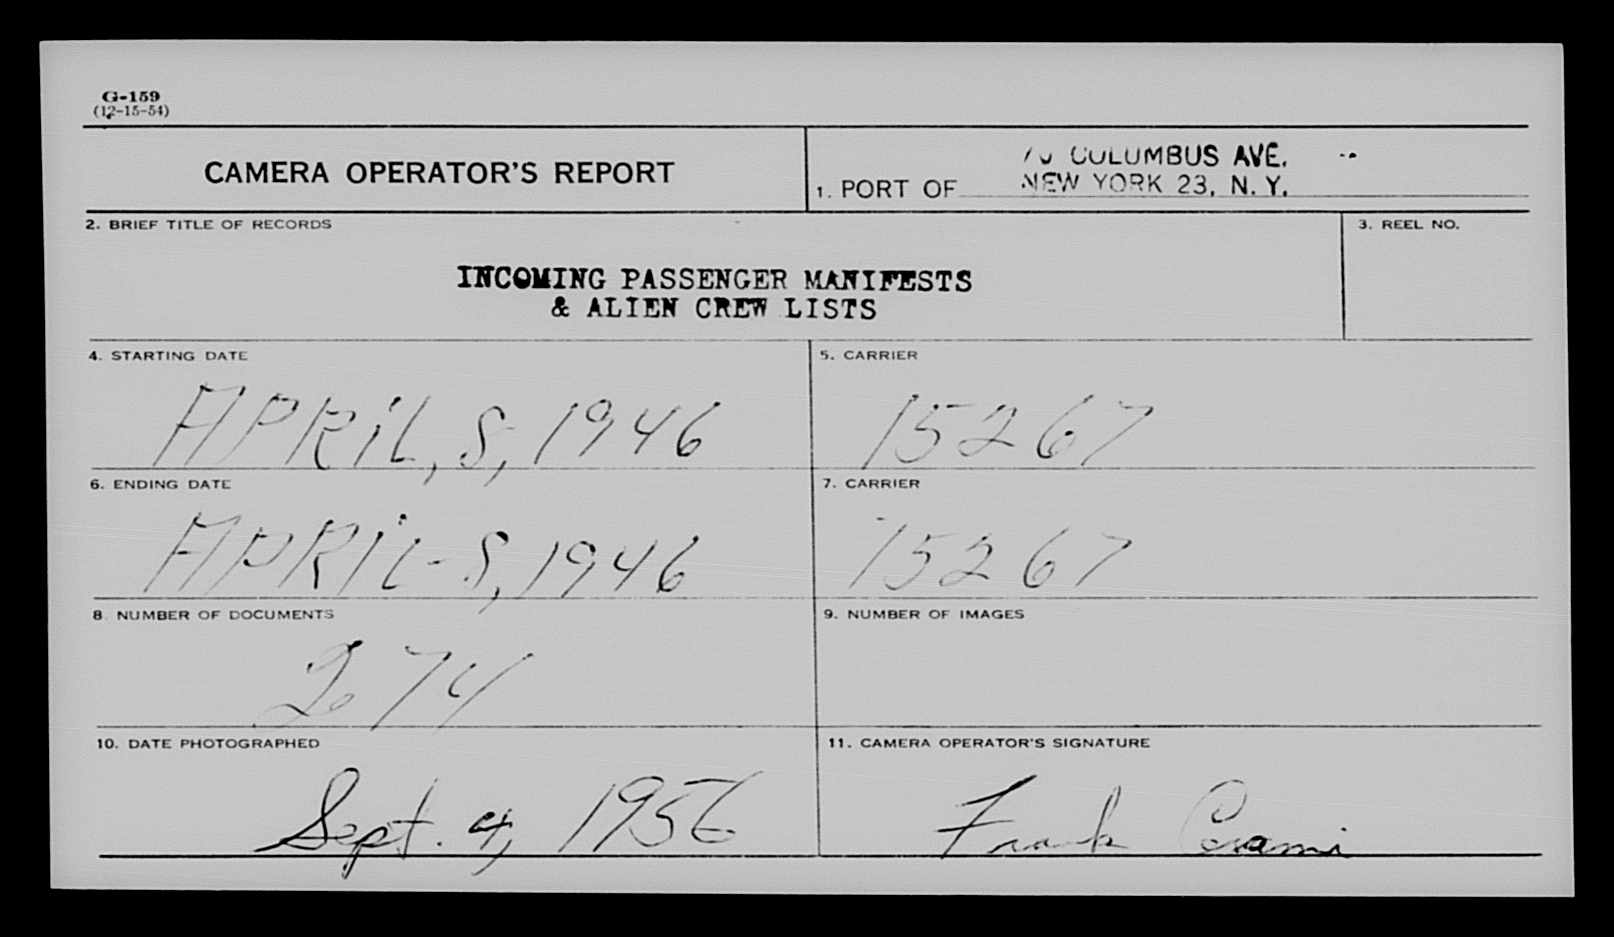 G-159
(12-15-54)
CAMERA OPERATOR'S REPORT
70 COLUMBUS AVE.
1. PORT OF NEW YORK 23, N. Y.
2. BRIEF TITLE OF RECORDS
3. REEL NO.
INCOMING PASSENGER MANIFESTS
& ALIEN CREW LISTS
4. STARTING DATE
5. CARRIER
APRIL, 8, 1946
15267
6. ENDING DATE
7. CARRIER
APRIL-8, 1946
15267
8. NUMBER OF DOCUMENTS
9. NUMBER OF IMAGES
274
10. DATE PHOTOGRAPHED
11. CAMERA OPERATOR'S SIGNATURE
Sept. 4, 1956
Frank